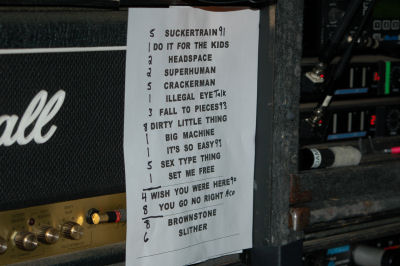 all
5 SUCKERTRAIN 91
1 DO IT FOR THE KIDS
2 HEADSPACE
2 SUPERHUMAN
5 CRACKERMAN
1 ILLEGAL EYE Talk
3 FALL TO PIECES 93
8 DIRTY LITTLE THING
1 BIG MACHINE
1 IT'S SO EASY 93
5 SEX TYPE THING
1 SET ME FREE
4 WISH YOU WERE HERE 90
8 YOU GO NO RIGHT Aco
8 BROWNSTONE
6 SLITHER